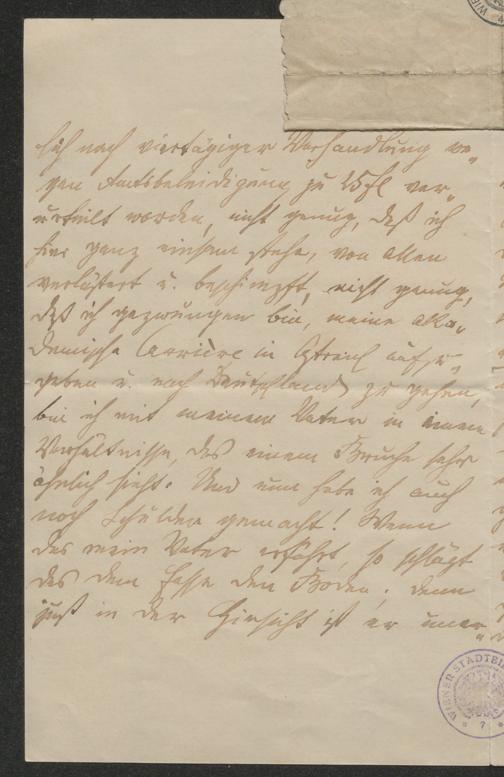 ich nach viertägiger Verhandlung we-
gen Amtsbeleidigung zu 25 fl ver-
urteilt worden, nicht genug, daß ich
hier ganz einsam stehe, von allen
verlästert u. beschimpft, nicht genug,
daß ich gezwungen bin, meine aka-
demische Carrière in Österreich aufzu-
geben u. nach Deutschland zu gehen,
bin ich mit meinem Vater in einem
Verhältnisse, das einem Bruche sehr
ähnlich sieht. Und nun habe ich auch
noch Schulden gemacht! Wenn
das mein Vater erfährt, so schlägt
das dem Fasse den Boden; denn
just in der Hinsicht ist er uner-
WIENER STADTBI
7
WIEN